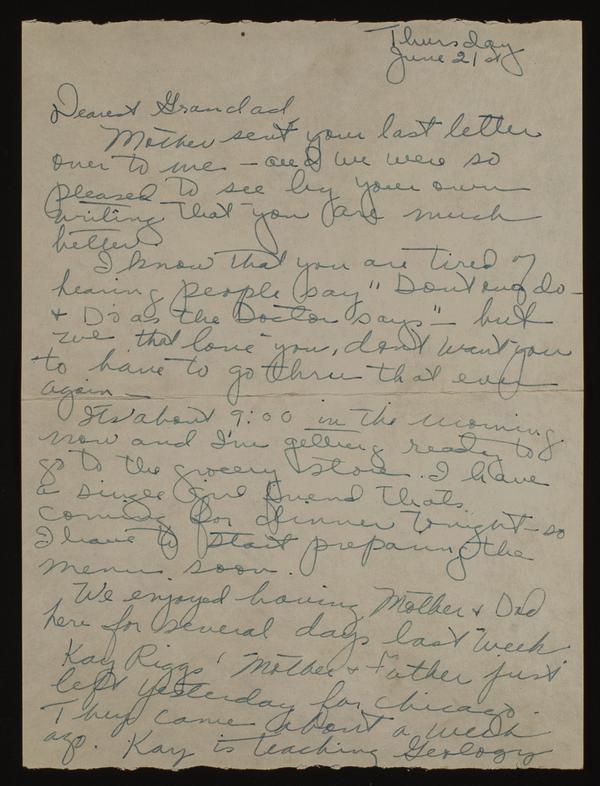 Thursday
June 21st
Dearest Grandad,
Mother sent your last letter
over to me - and we were so
pleased to see by your own
writing that you are much
better.
I know that you are tired of
hearing people say "Don't do -
& Do as the Doctor says" - but
we that love you, don't want you
to have to go thru that ever
again -
Its about 9:00 in the morning
now and I'm getting ready to
go to the grocery store. I have
a single girl friend thats
coming for dinner tonight - so
I have to start preparing the
menu soon.
We enjoyed having Mother & Dad
here for several days last week
Kay Riggs' Mother & Father just
left yesterday for Chicago.
They came about a week
ago. Kay is teaching Geology